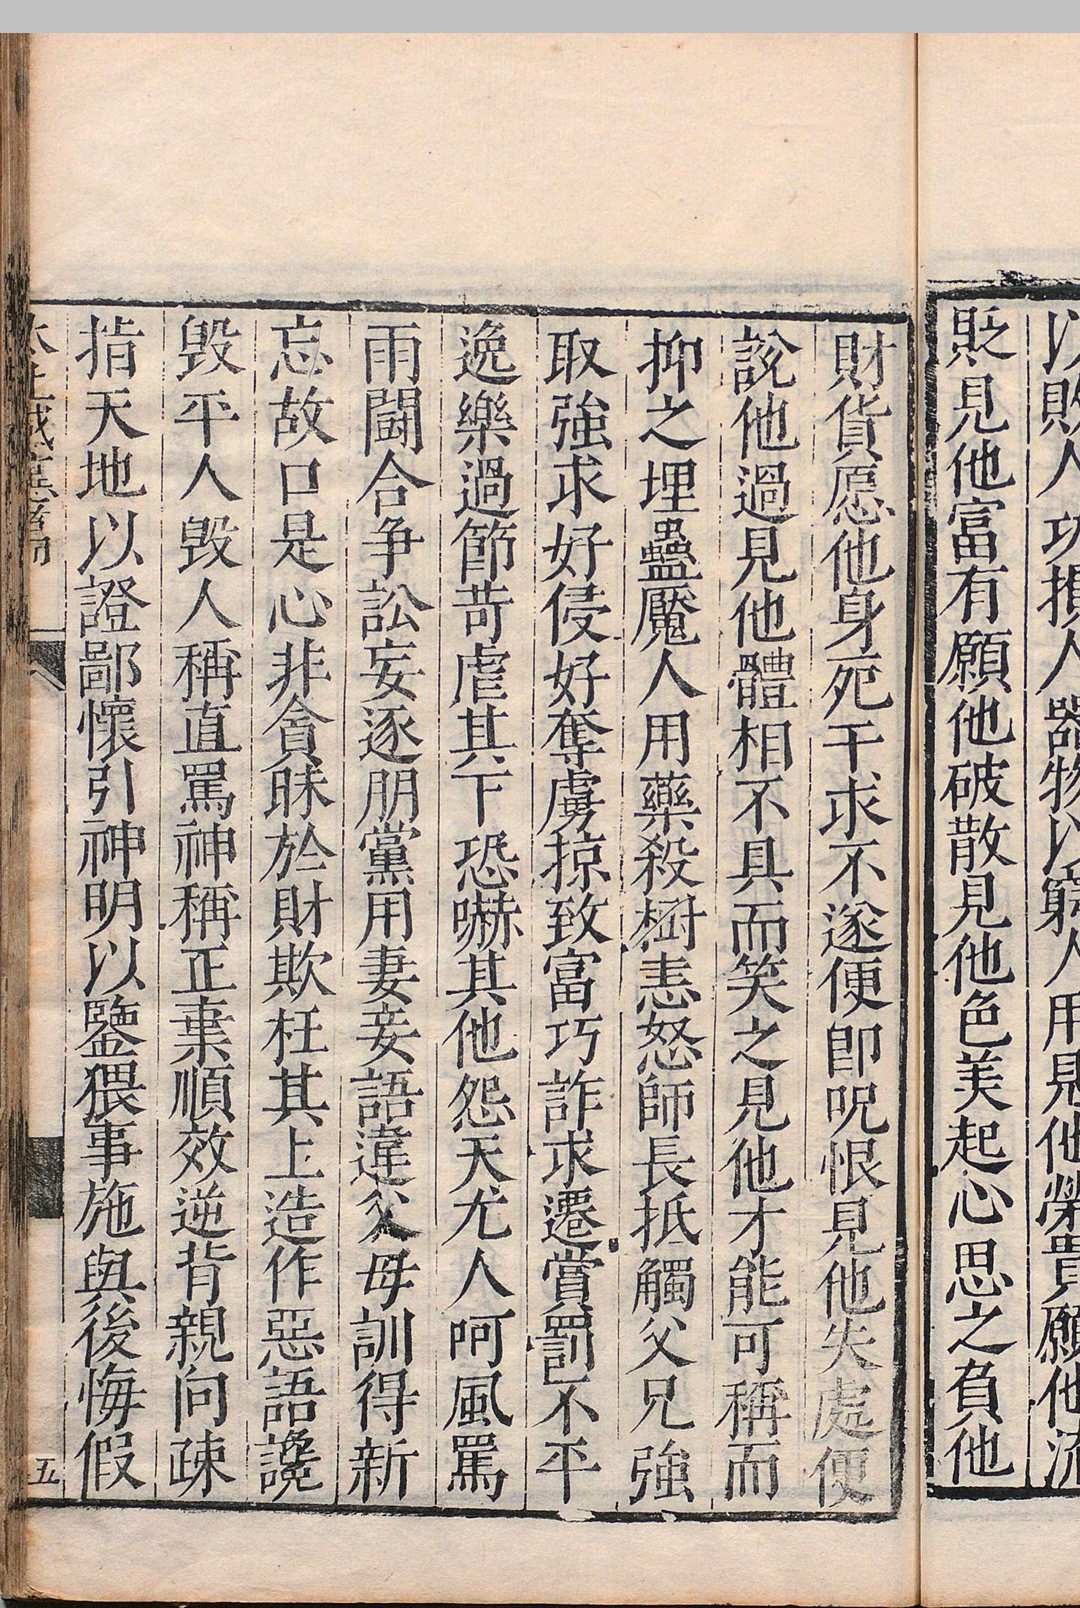 以敗人功損人器物以窮人用見他榮貴願他流
貶見他富有願他破散見他色美起心思之負他
財貨愿他身死干求不遂便卽呪恨見他失處便
說他過見他體相不具而笑之見他才能可稱而
抑之埋蠱魘人用藥殺樹恚怒師長抵觸父兄強
取強求好侵好奪虜掠致富巧詐求遷賞罰不平
逸樂過節苛虐其下恐嚇其他怨天尤人呵風罵
雨鬪合争訟妄逐朋黨用妻妾語違父母訓得新
忘故口是心非貪昧於財欺枉其上造作惡語讒
毀平人毀人稱直罵神稱正棄順效逆背親向疎
指天地以證鄙懷引神明以鑒猥事施與後悔假
太上感應篇 五